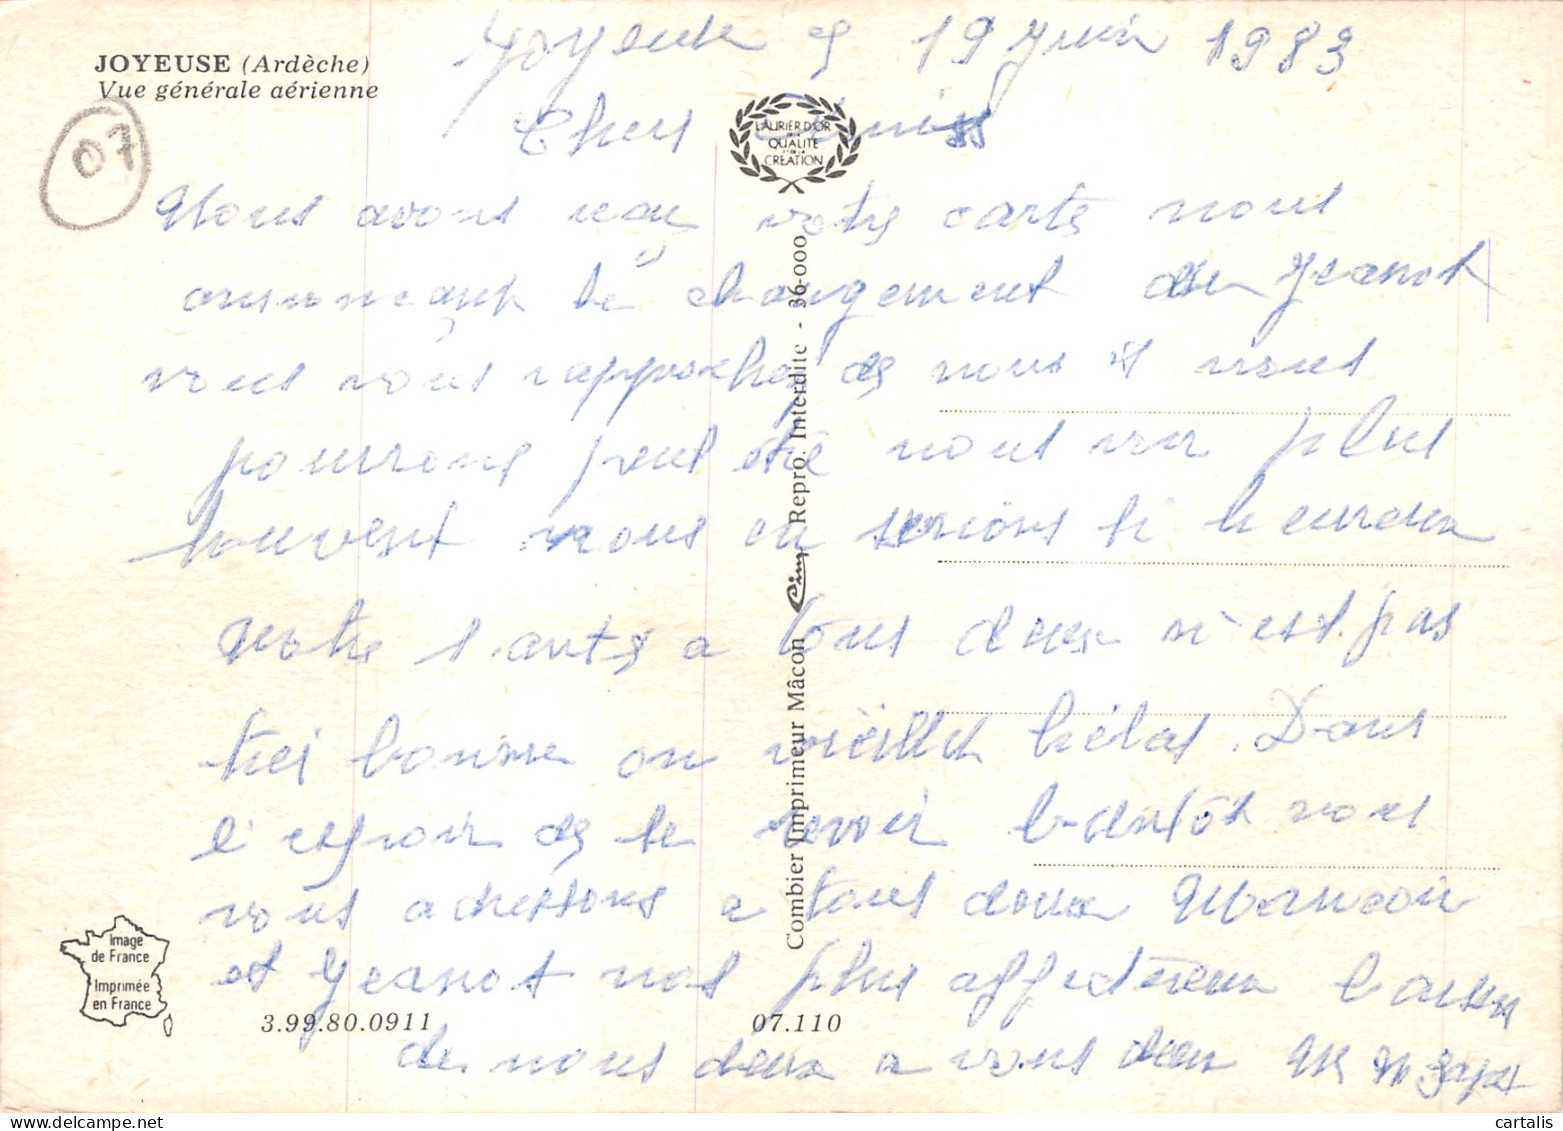 JOYEUSE (Ardèche)
Vue générale aérienne
07
Joyeuse 19 Juin 1983
Chers Amis
LAURIER D'OR
DE LA
QUALITÉ
ET DE LA
CRÉATION
Nous avons reçu votre carte nous
annonçant le changement de Jeanot
vous vous rapprochez de nous et vous
pourrons peut être nous voir plus
souvent nous en serions si heureux
notre santé a tous deux n'est pas
très bonne on vieillit hélas. Dans
l'espoir de se revoir bientôt nous
vous adressons a tous deux
et Jeanot nos plus affectueux baisers
de nous deux a vous deux M M
Combier Imprimeur Mâcon Cim Repro. Interdite - 36-000
Image
de France
Imprimée
en France
3.99.80.0911
07.110
cartalis